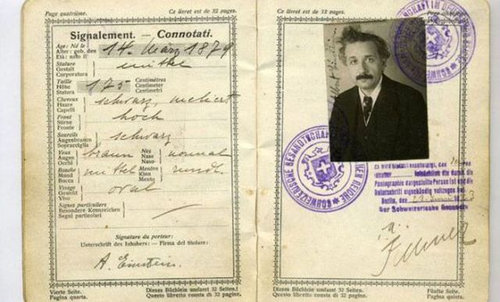 Page quatrième.
Ce livret est de 32 pages.
Signalement. — Connotati.
Age: Né le
Alter: geb. den
Età: nato il
14. März 1879
Stature
Gestalt
Corporatura
mittel
Taille
Höhe
Statura
175
Centimètres
Centimeter
Centimetri
Cheveux
Haare
Capelli
schwarz, meliert
Front
Stirne
Fronte
hoch
Sourcils
Augenbrauen
Sopracciglia
schwarz
Yeux
Augen
Occhi
braun
Nez
Nase
Naso
normal
Bouche
Mund
Bocca
mittel
Menton
Kinn
Mento
rund
Visage
Gesicht
Viso
oval
Signes particuliers
Besondere Kennzeichen
Segni particolari
Signature du porteur:
Unterschrift des Inhabers: — Firma del titolare:
A. Einstein.
Vierte Seite.
Pagina quarta.
Dieses Büchlein umfasst 32 Seiten.
Questo libretto consta di 32 pagine.
Ce livret est de 32 pages.
SCHWEIZERISCHE GESANDTSCHAFT
die durch die
Photographie dargestellte Person ist und die
Unterschrift eigenhändig vollzogen hat.
Berlin, den
Der Schweizerische Gesandte
Dieses Büchlein umfasst 32 Seiten.
Questo libretto consta di 32 pagine.
Fünfte Seite.
Pagina quinta.